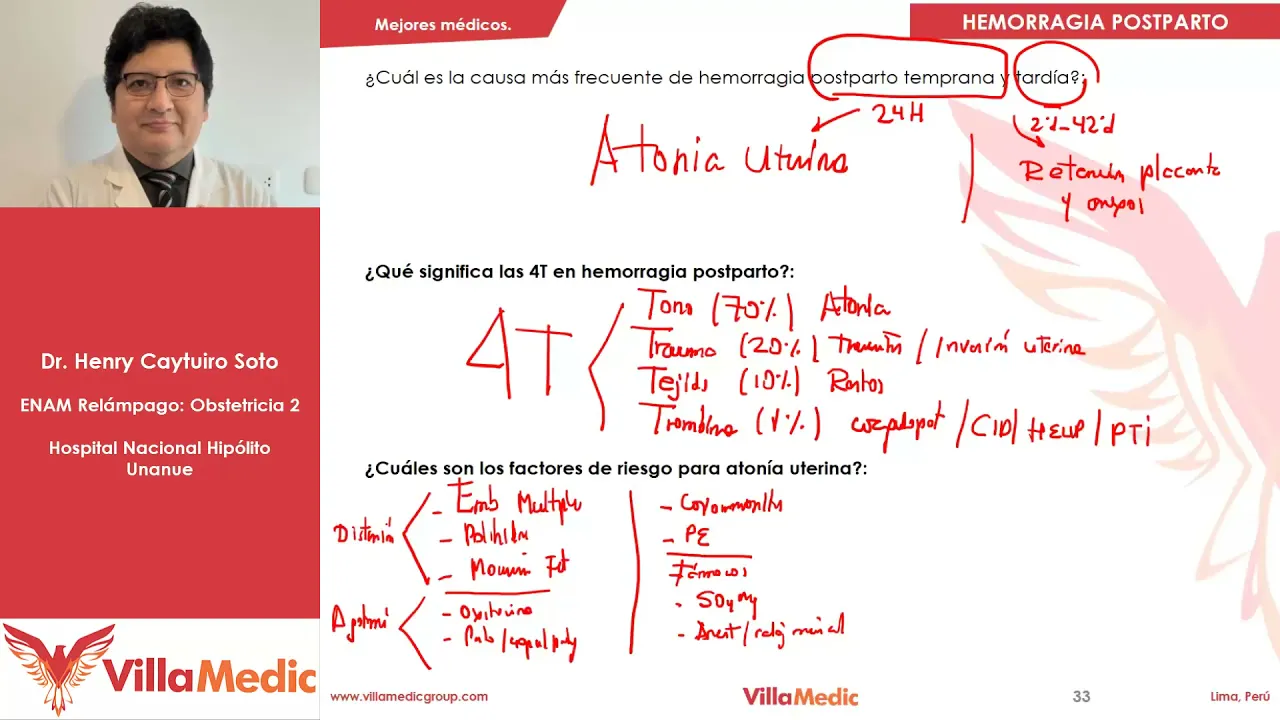 Mejores médicos.
HEMORRAGIA POSTPARTO
¿Cuál es la causa más frecuente de hemorragia postparto temprana y tardía?:
24H
2d-42d
Atonia uterina
Retención placenta
y
¿Qué significa las 4T en hemorragia postparto?:
4T
Tono (70%) Atonia
Trauma (20%) / Inversión uterina
Tejido (10%) Restos
Trombina (1%) / CID / HELLP / PTI
¿Cuáles son los factores de riesgo para atonía uterina?:
Distensión
- Emb Multiple
- Polihidra
- Fet
- Oxitocina
- Parto /
- PE
Fármacos
- SO4 Mg
- Anest /
Dr. Henry Caytuiro Soto
ENAM Relámpago: Obstetricia 2
Hospital Nacional Hipólito
Unanue
VillaMedic
www.villamedicgroup.com
VillaMedic
33
Lima, Perú